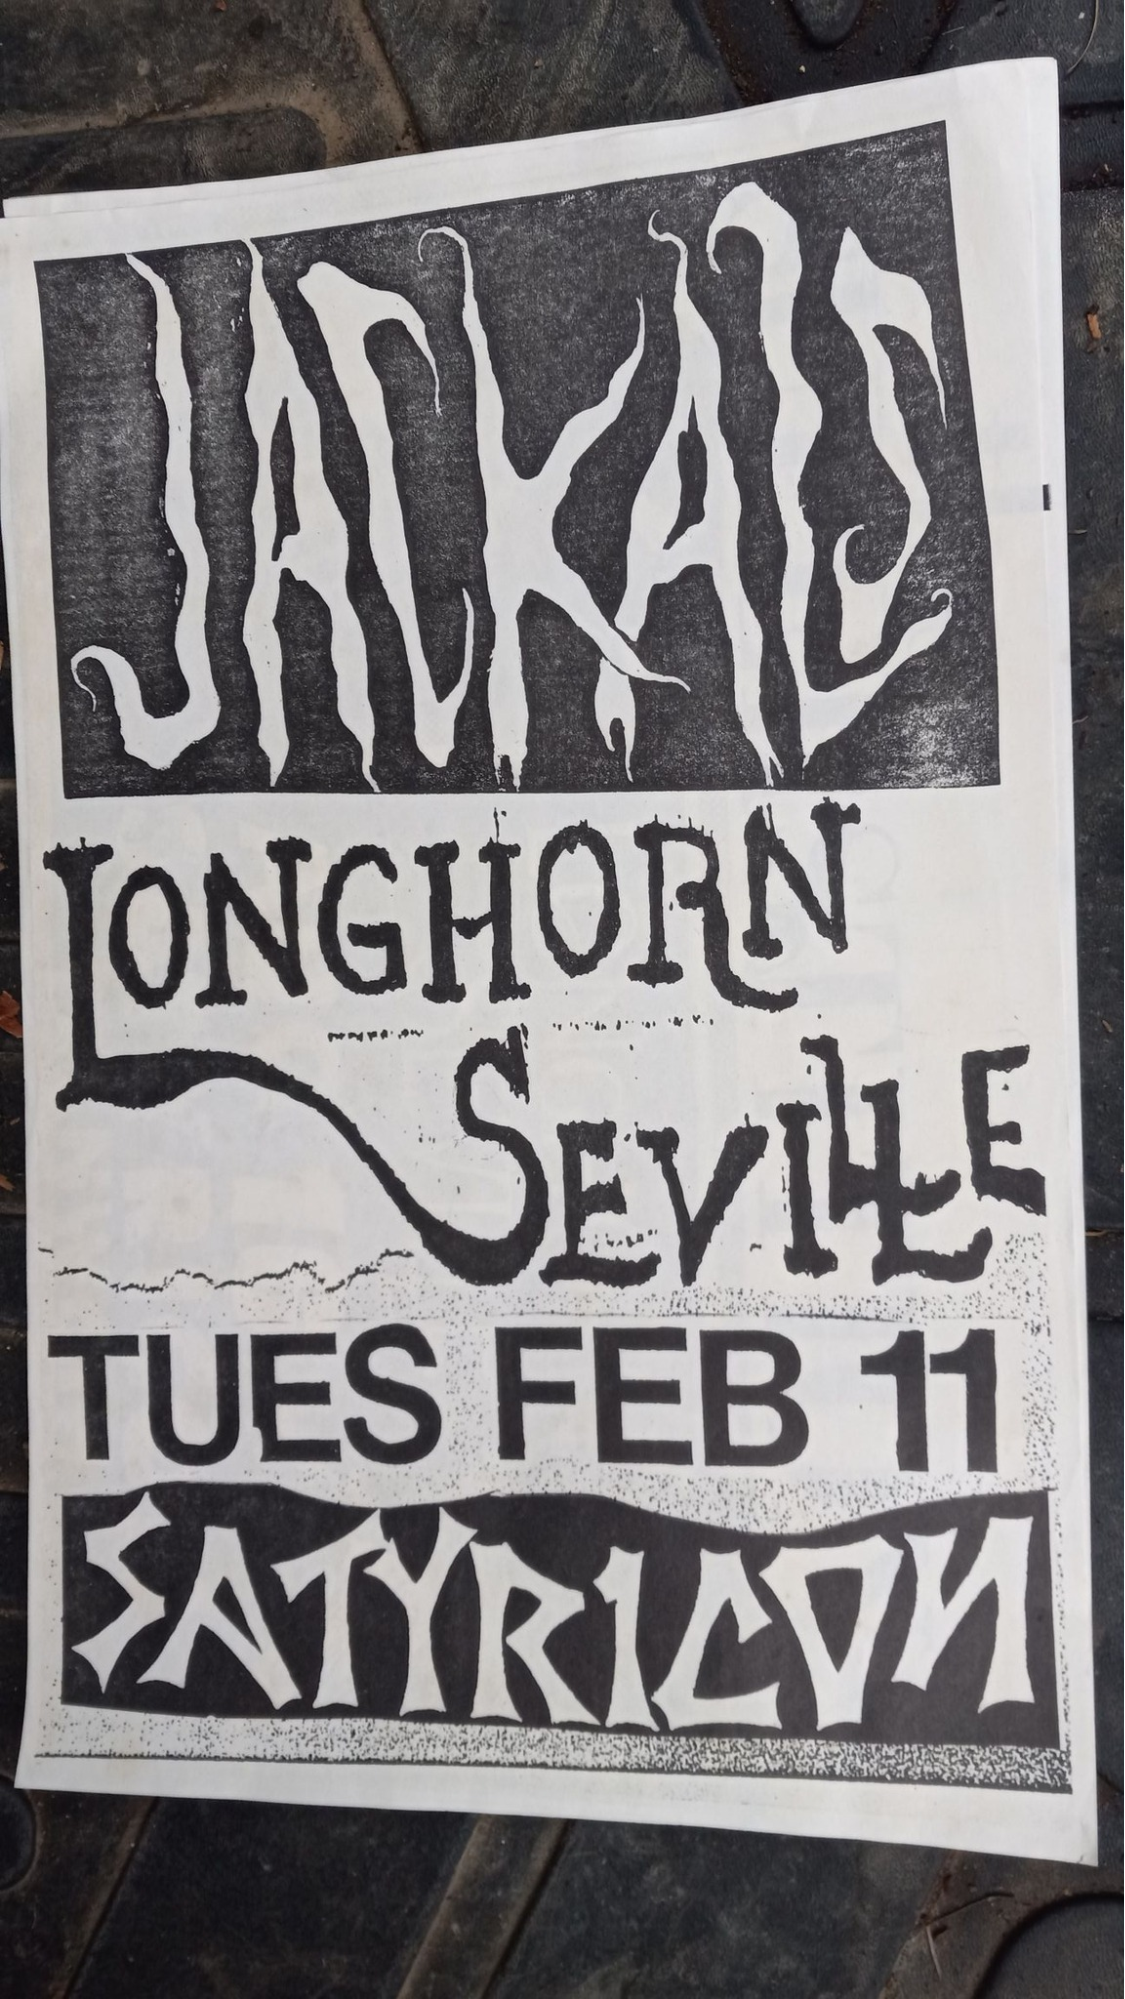 JACKALS
LONGHORN
SEVILLE
TUES FEB 11
SATYRICON